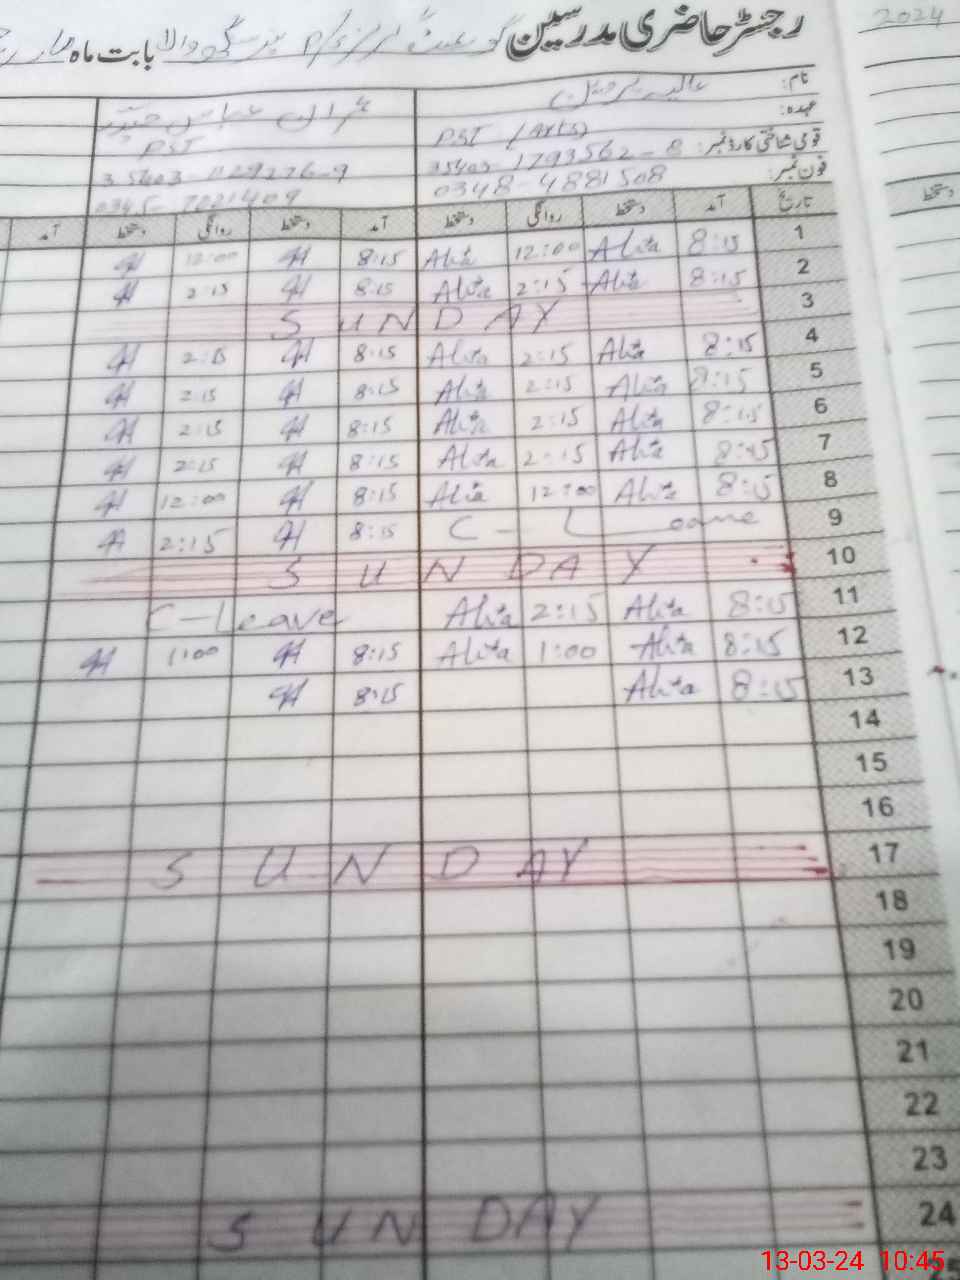 2024
رجسٹر حاضری مدرسین
بابت ماہ
نام:
عہدہ: PST (Arts) PST
قومی شناختی کارڈ نمبر: 35403-1793562-8
فون نمبر: 0348-4881508 0345-7021409
تاریخ آمد دستخط روانگی دستخط آمد دستخط روانگی دستخط آمد
1 8:15 Alia 12:00 Alia 8:15 H 12:00 H
2 8:15 Alia 2:15 Alia 8:15 H 2:15 H
3 SUNDAY
4 8:15 Alia 2:15 Alia 8:15 H 2:15 H
5 8:15 Alia 2:15 Alia 8:15 H 2:15 H
6 8:15 Alia 2:15 Alia 8:15 H 2:15 H
7 8:15 Alia 2:15 Alia 8:15 H 2:15 H
8 8:15 Alia 12:00 Alia 8:15 H 12:00 H
9 C-Leave 8:15 H 2:15 H
10 SUNDAY
11 8:15 Alia 2:15 Alia C-Leave
12 8:15 Alia 1:00 Alia 8:15 H 1:00 H
13 8:15 Alia 8:15 H
14
15
16
17 SUNDAY
18
19
20
21
22
23
24 SUNDAY
25
دستخط
13-03-24 10:45